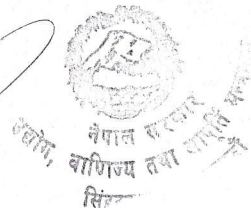 नेपाल सरकार
उद्योग, वाणिज्य तथा आपूर्ति